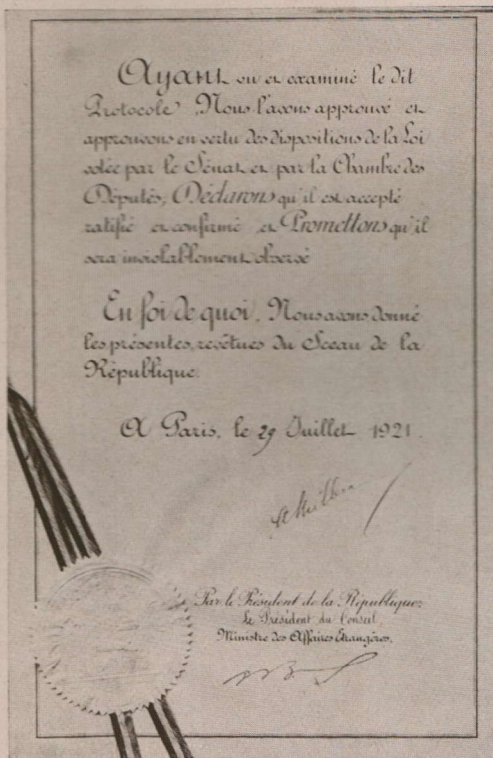 Ayant vu et examiné le dit
Protocole Nous l'avons approuvé et
approuvons en vertu des dispositions de la Loi
votée par le Sénat et par la Chambre des
Députés, Déclarons qu'il est accepté
ratifié et confirmé et Promettons qu'il
sera inviolablement observé
En foi de quoi, Nous avons donné
les présentes, revêtues du Sceau de la
République.
A Paris, le 29 Juillet 1921.
Par le Président de la République:
Le Président du Conseil,
Ministre des Affaires Etrangères,